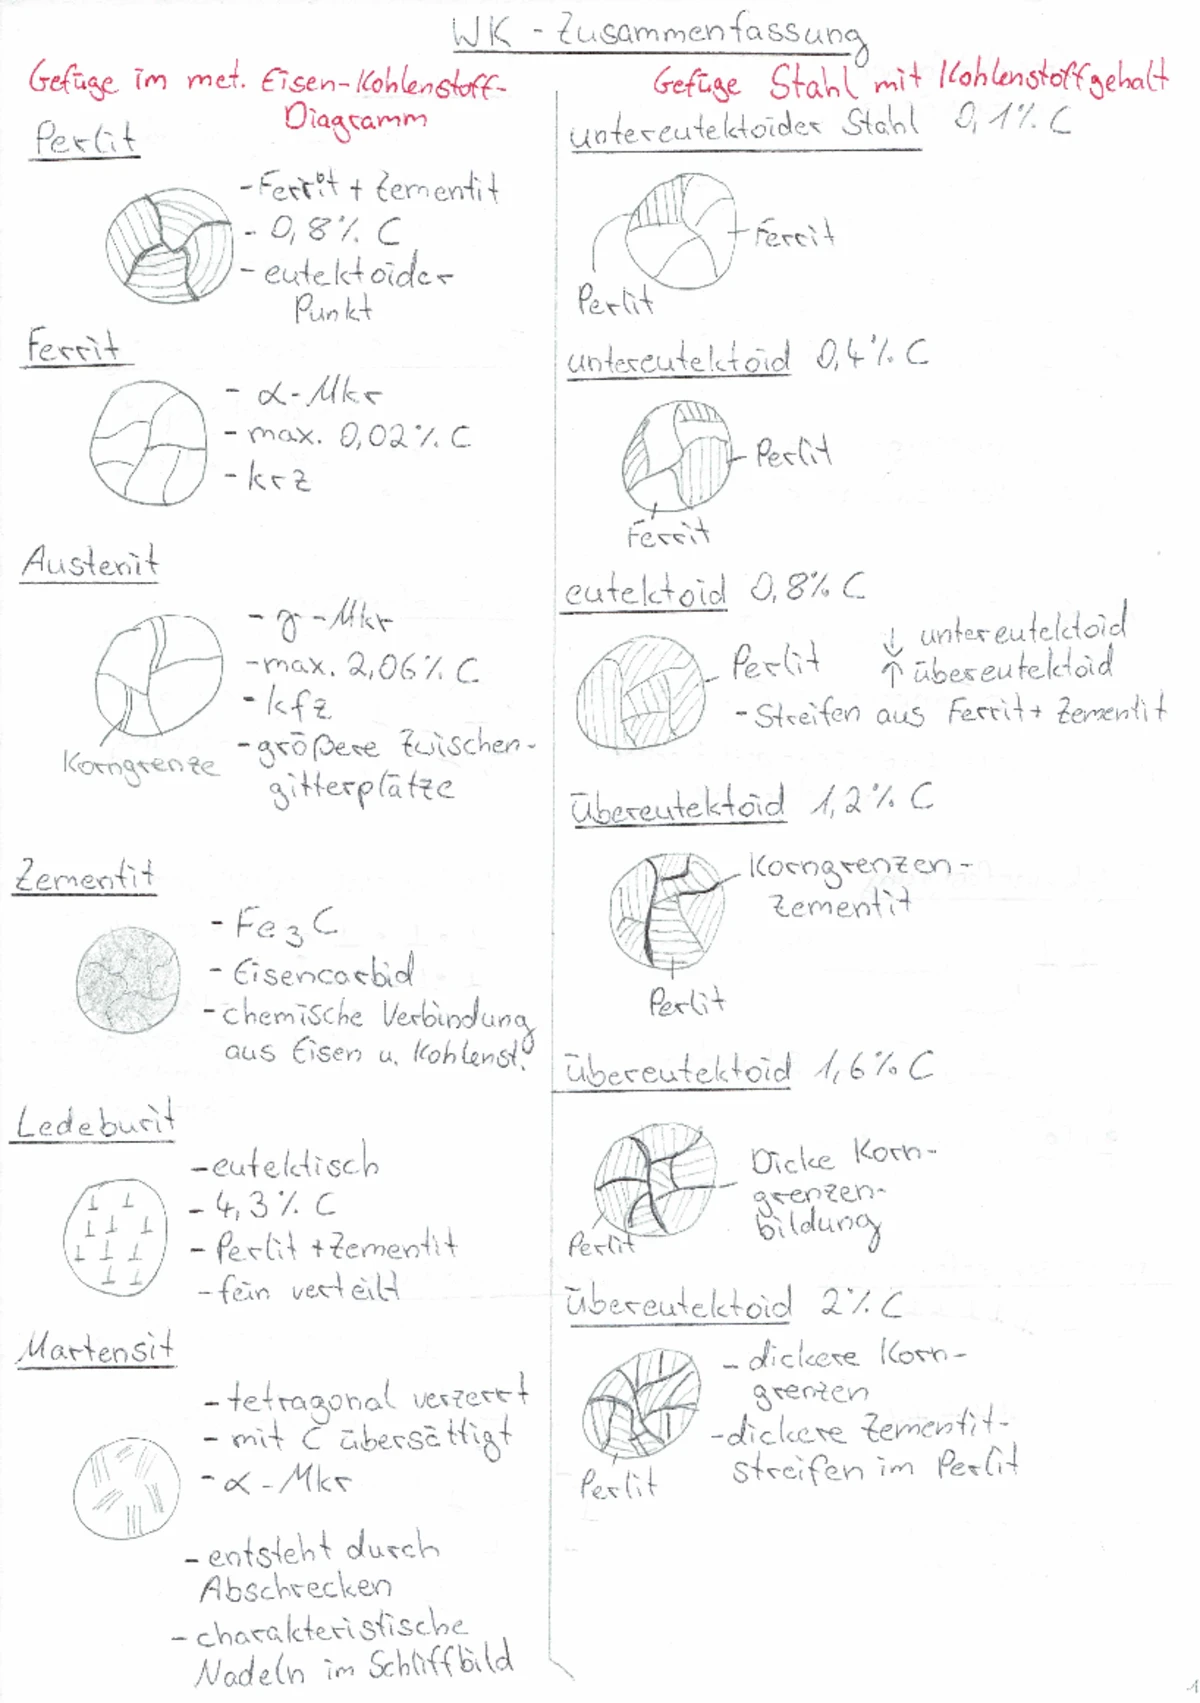 WK - Zusammenfassung
Gefüge im met. Eisen-Kohlenstoff-
Diagramm
Perlit
- Ferrit + Zementit
- 0,8% C
- eutektoider
Punkt
Ferrit
- α-Mkr
- max. 0,02% C
- krz
Austenit
- γ-Mkr
- max. 2,06% C
- kfz
- größere Zwischen-
gitterplätze
Korngrenze
Zementit
- Fe3C
- Eisencarbid
- chemische Verbindung
aus Eisen u. Kohlenst.
Ledeburit
- eutektisch
- 4,3% C
- Perlit + Zementit
- fein verteilt
Martensit
- tetragonal verzerrt
- mit C übersättigt
- α-Mkr
- entsteht durch
Abschrecken
- charakteristische
Nadeln im Schliffbild
Gefüge Stahl mit Kohlenstoffgehalt
untereutektoider Stahl 0,1% C
Ferrit
Perlit
untereutektoid 0,4% C
Perlit
Ferrit
eutektoid 0,8% C
Perlit
↓ untereutektoid
↑ übereutektoid
- Streifen aus Ferrit + Zementit
übereutektoid 1,2% C
Korngrenzen-
zementit
Perlit
übereutektoid 1,6% C
Dicke Korn-
grenzen-
bildung
Perlit
übereutektoid 2% C
- dickere Korn-
grenzen
- dickere Zementit-
streifen im Perlit
Perlit
1